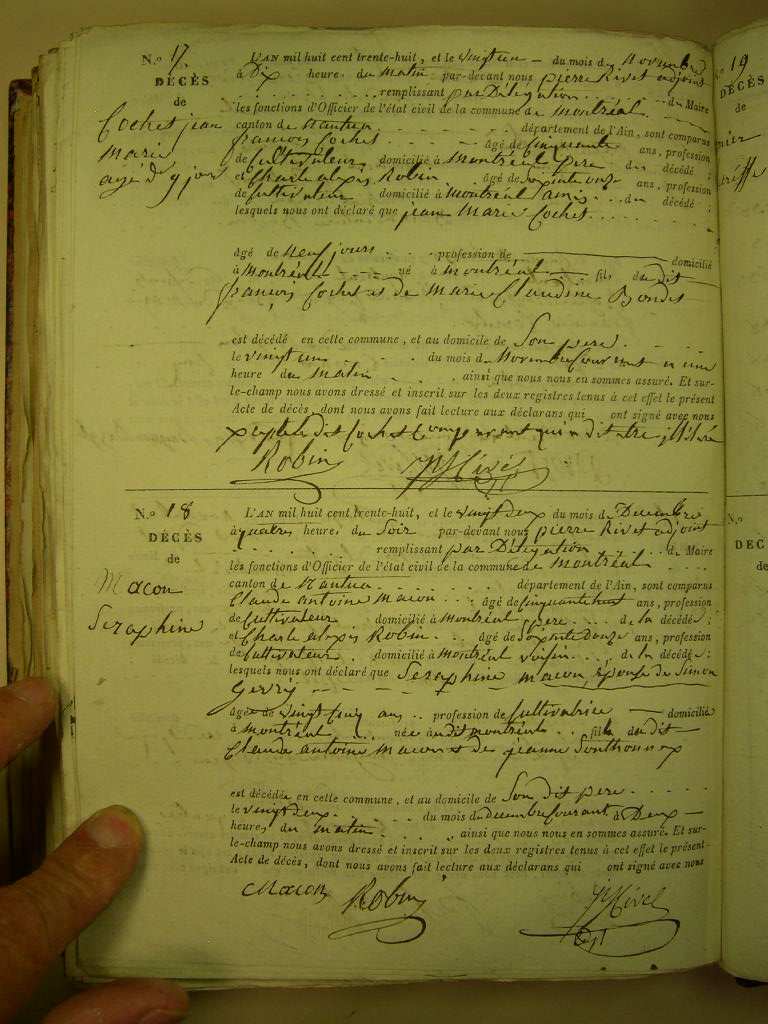 N.o 17.
DÉCÈS
de
Cochet jean
marie
agé d 9 jour
L'AN mil huit cent trente-huit, et le vingt un du mois de Novembre
à Dix heure. du matin par-devant nous pierre Rivet adjoint
remplissant par Délégation du Maire
les fonctions d'Officier de l'état civil de la commune de montréal
canton de Nantua département de l'Ain, sont comparus
françois Cochet âgé de cinquante ans, profession
de Cultivateur domicilié à Montréal pere du décédé ;
et Charle alexis Robin âgé de soixante onze ans, profession
de Cultivateur domicilié à Montréal amis du décédé :
lesquels nous ont déclaré que jean Marie Cochet
âgé de neuf jours profession de domicilié
à Montréal né à montréal fils du dit
françois Cochet et de marie Claudine Bondet
est décédé en cette commune, et au domicile de Son pere
le vingt un du mois de Novembre Courrant a une
heure du matin , ainsi que nous nous en sommes assuré. Et sur-
le-champ nous avons dressé et inscrit sur les deux registres tenus à cet effet le présent
Acte de décès, dont nous avons fait lecture aux déclarans qui ont signé avec nous
Cochet Comparant qui a dit etre illitéré
Robin
N.o 18
DÉCÈS
de
Macon
Seraphine
L'AN mil huit cent trente-huit, et le vingt deux du mois de Decembre
à quatre heures du Soir par-devant nous pierre Rivet adjoint
remplissant par Délégation du Maire
les fonctions d'Officier de l'état civil de la commune de montréal
canton de Nantua département de l'Ain, sont comparus
Claude antoine macon âgé de cinquante huit ans, profession
de Cultivateur domicilié à montréal pere de la décédée ;
et Charle alexis Robin âgé de soixante douze ans, profession
de Cultivateur domicilié à montréal voisin de la décédée :
lesquels nous ont déclaré que Seraphine macon, Epouse de Simon
âgée de vingt cinq ans profession de Cultivatrice domiciliée
à montréal née audit montréal fille du dit
Claude antoine macon et de jeanne Southonnax
est décédée en cette commune, et au domicile de Son dit pere
le vingt deux du mois de decembre Courant à Deux
heures du matin , ainsi que nous nous en sommes assuré. Et sur-
le-champ nous avons dressé et inscrit sur les deux registres tenus à cet effet le présent
Acte de décès, dont nous avons fait lecture aux déclarans qui ont signé avec nous
Macon Robin
N.o 19
DÉCÈS
de
N.o
DÉC
de